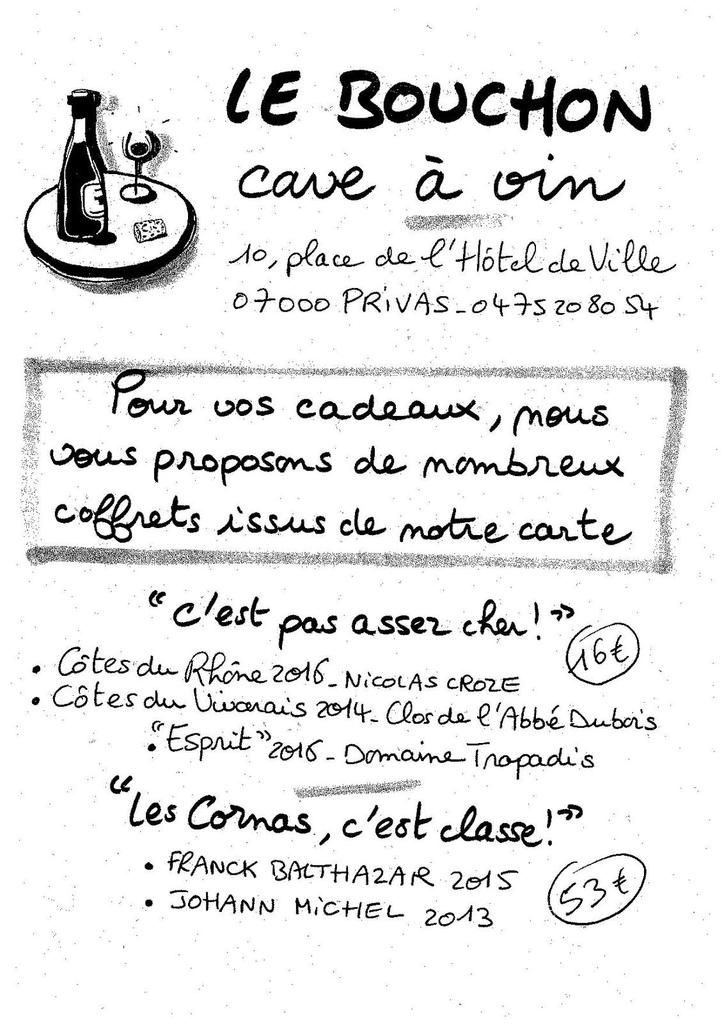 LE BOUCHON
cave à vin
10, place de l'Hôtel de Ville
07000 PRIVAS - 04 75 20 80 54
Pour vos cadeaux, nous
vous proposons de nombreux
coffrets issus de notre carte
“c'est pas assez cher!”
16€
• Côtes du Rhône 2016 - NICOLAS CROZE
• Côtes du Vivarais 2014 - Clos de l'Abbé Dubois
• "Esprit" 2016 - Domaine Trapadis
“Les Cornas, c'est classe!”
• FRANCK BALTHAZAR 2015
53€
• JOHANN MICHEL 2013